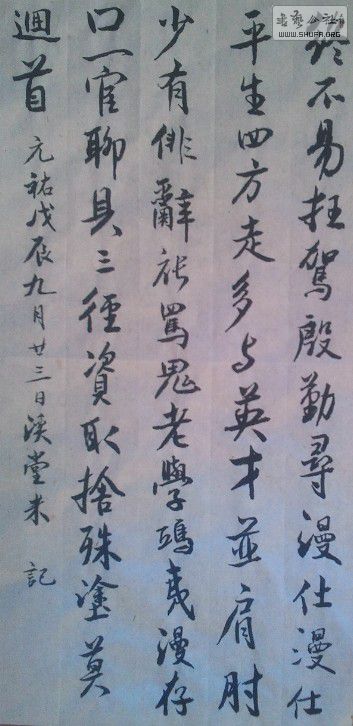 書藝公社
WWW.SHUFA.ORG
終不易枉駕殷勤尋漫仕漫仕
平生四方走多与英才並肩肘
少有俳辭能罵鬼老學鴟夷漫存
口一官聊具三徑資取捨殊塗莫
迴首 元祐戊辰九月廿三日溪堂米 記